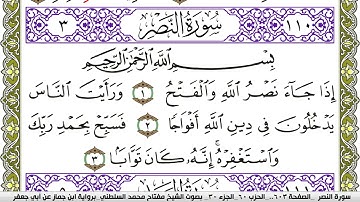 ٣ سُورَةُ النَّصْرِ ١١٠
بِسْمِ اللَّهِ الرَّحْمَٰنِ الرَّحِيمِ
إِذَا جَآءَ نَصْرُ اللَّهِ وَالْفَتْحُ ١ وَرَأَيْتَ النَّاسَ
يَدْخُلُونَ فِي دِينِ اللَّهِ أَفْوَاجًا ٢ فَسَبِّحْ بِحَمْدِ رَبِّكَ
وَاسْتَغْفِرْهُ إِنَّهُ كَانَ تَوَّابًا ٣
سورة النصر _الصفحة ٦٠٣.. الحزب ٦٠..الجزء ٣٠.. بصوت الشيخ مفتاح محمد السلطني .برواية ابن جماز عن أبي جعفر